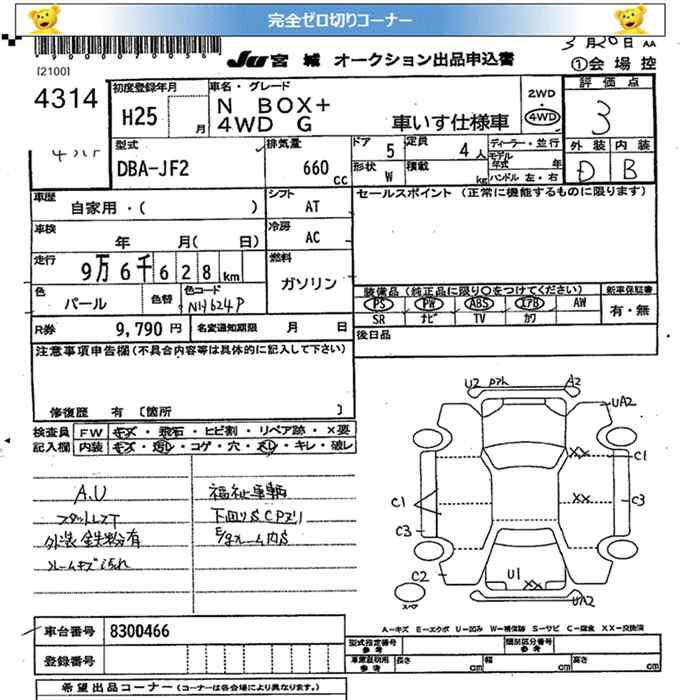 完全ゼロ切りコーナー
[2100]
JU 宮城 オークション出品申込書
3月20日 AA
①会場控
4314
初度登録年月
H25 月
車名・グレード
N BOX+
4WD G 車いす仕様車
2WD
4WD
評価点
3
外装 内装
D B
型式
DBA-JF2
排気量
660 cc
ドア 5
定員 4人
ディーラー・並行
モデル年式 年
形状 W
積載 kg
ハンドル 左・右
車歴
自家用・( )
シフト
AT
セールスポイント (正常に機能するものに限ります)
車検
年 月( 日)
冷房
AC
走行
9万6千628km
燃料
ガソリン
色
パール
色替
色コード
NH624P
装備品 (純正品に限り○をつけてください)
PS PW ABS エアB AW
SR ナビ TV カワ
新車保証書
有・無
R券 9,790円
名変通知期限 月 日
後日品
注意事項申告欄 (不具合内容等は具体的に記入して下さい)
修復歴 有 [箇所 ]
検査員記入欄
FW キズ・飛石・ヒビ割・リペア跡・×要
内装 キズ・汚レ・コゲ・穴・スレ・キレ・破レ
A.U
スタットレスT
外装鉄粉有
福祉車輌
U2 A2
UA2
XX C1
C1 XX C3
C3
C2
U1 XX
UA2
スペア
A-キズ E-エクボ U-凹み W-補修跡 S-サビ C-腐食 XX-交換済
車台番号 8300466
登録番号
型式指定番号 参考
類別区分番号 参考
車庫証明用 参考
長さ cm 幅 cm 高さ cm
希望出品コーナー (コーナーは各会場により異なります。)